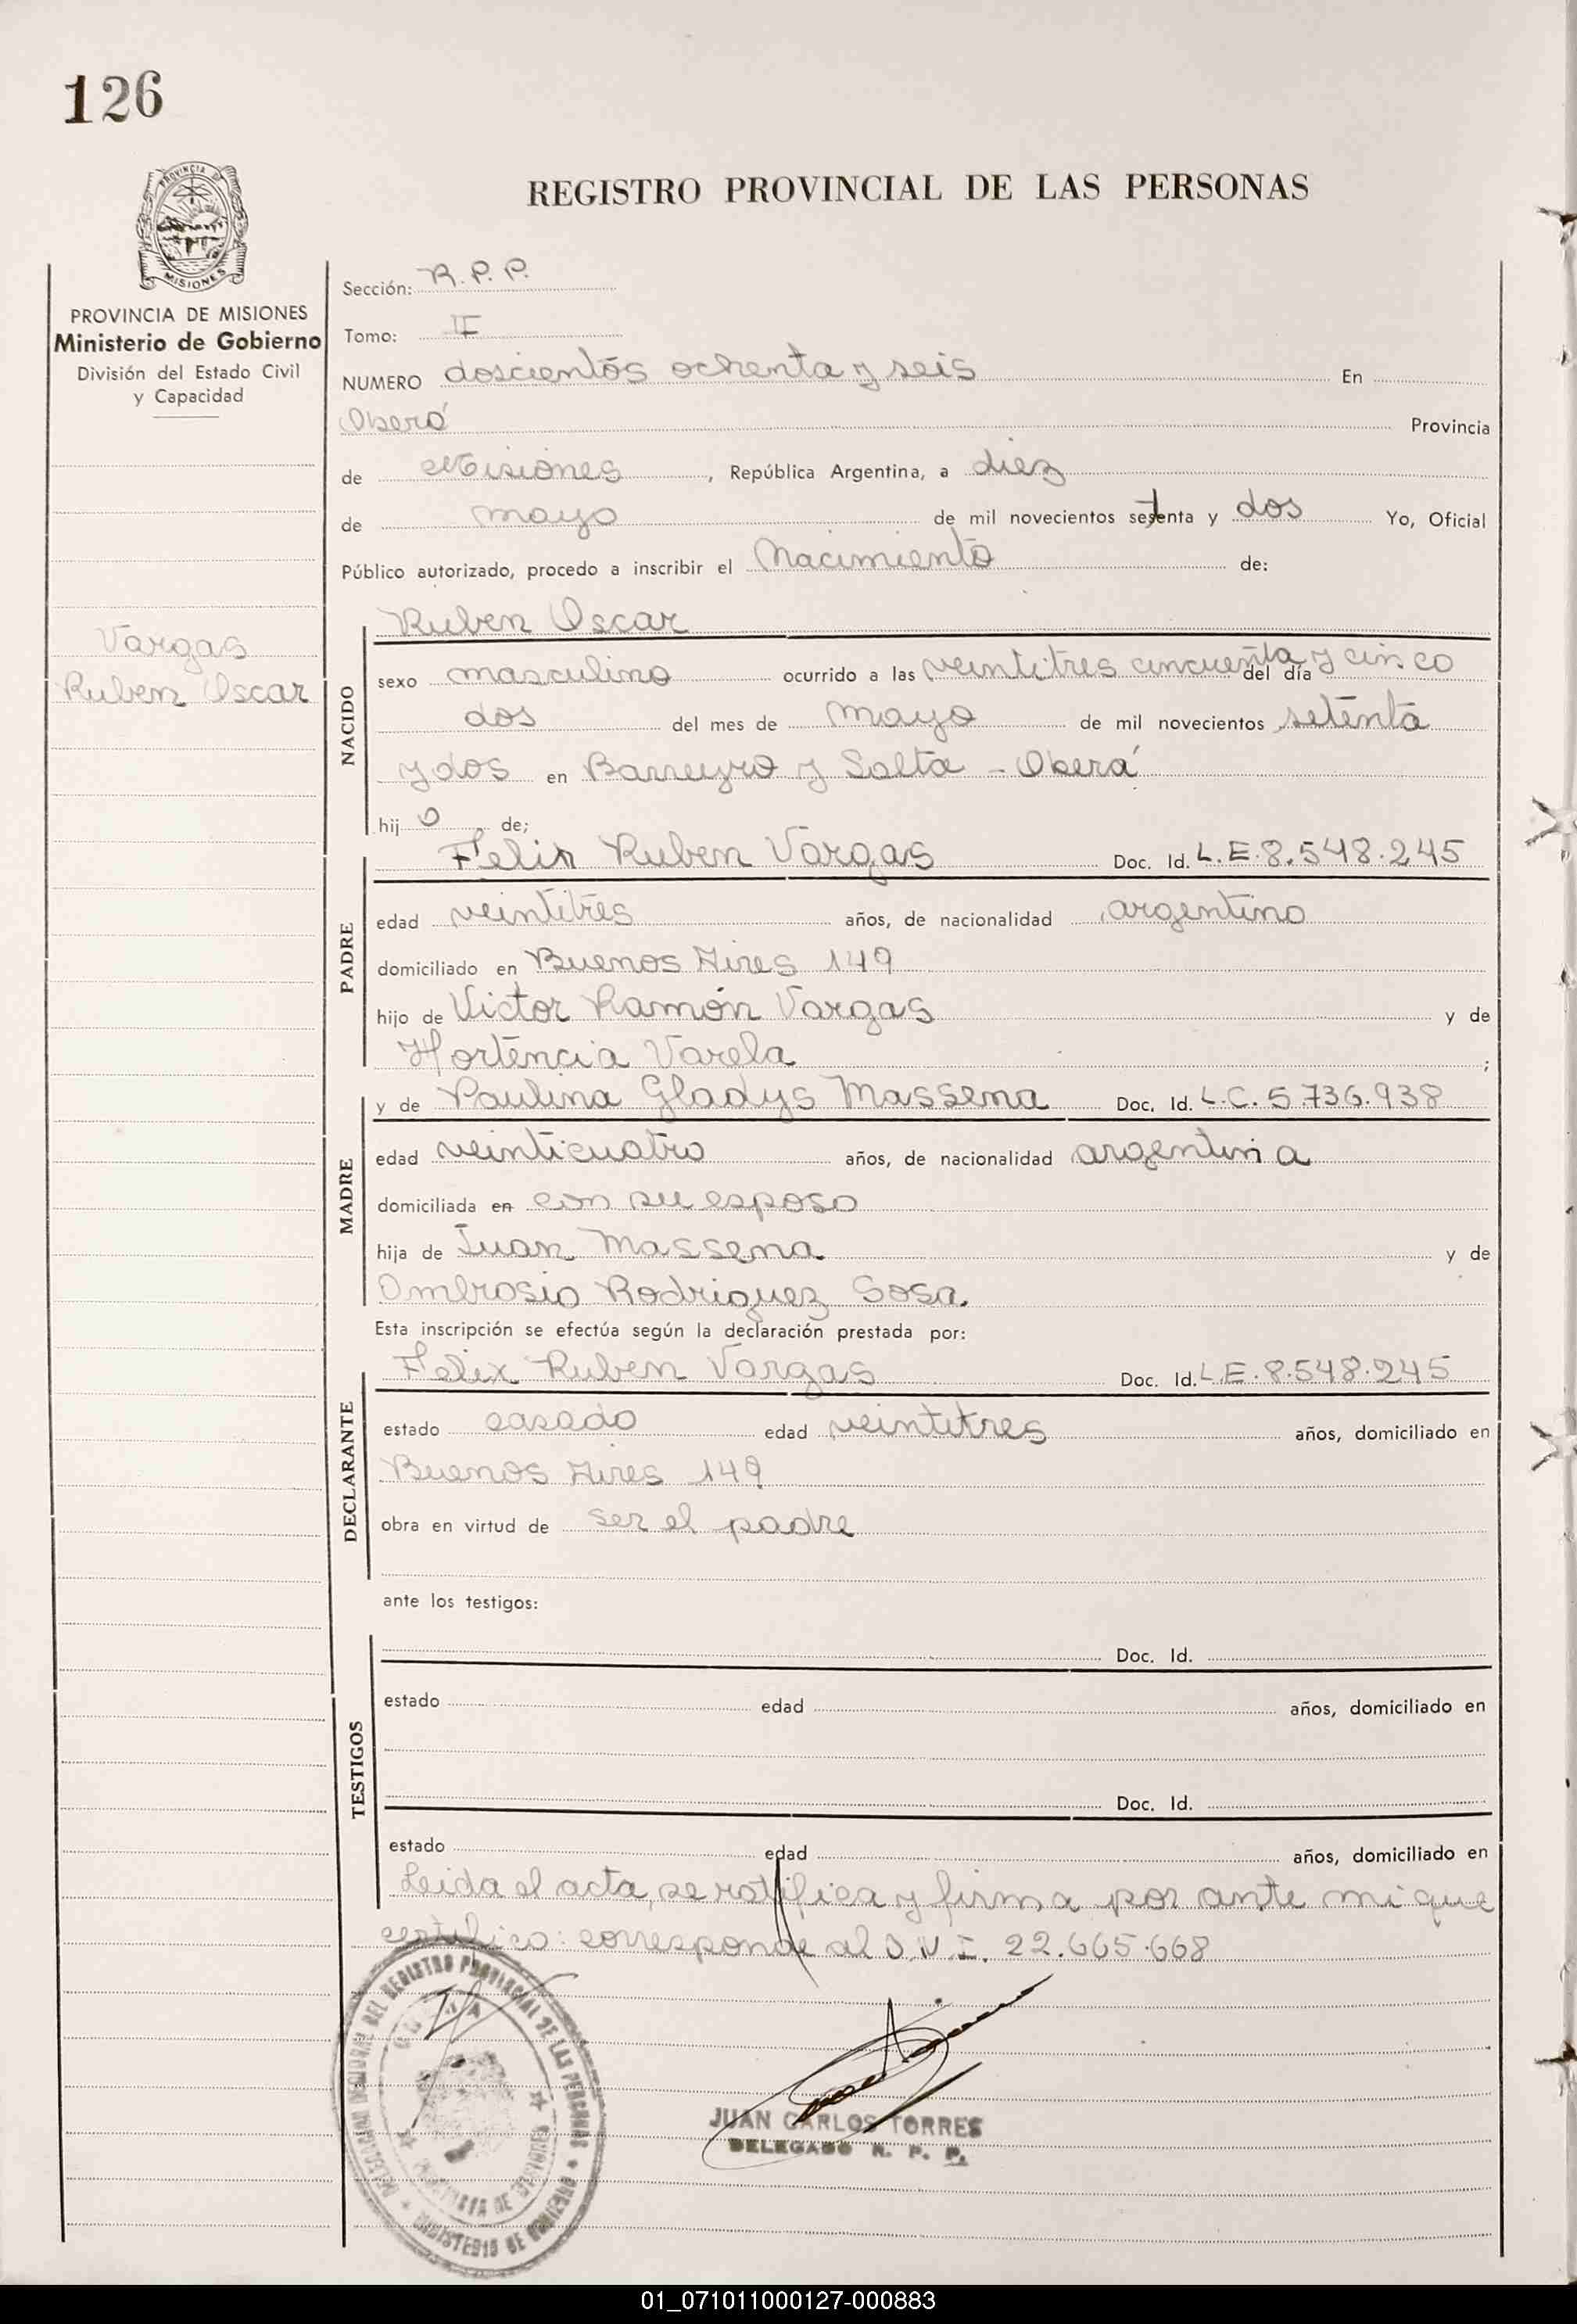 126
PROVINCIA DE MISIONES
REGISTRO PROVINCIAL DE LAS PERSONAS
PROVINCIA DE MISIONES
Ministerio de Gobierno
División del Estado Civil
y Capacidad
Vargas
Ruben Oscar
Sección: R.P.P.
Tomo: II
NUMERO doscientos ochenta y seis En
Oberá Provincia
de Misiones, República Argentina, a diez
de mayo de mil novecientos setenta y dos Yo, Oficial
Público autorizado, procedo a inscribir el Nacimiento de:
NACIDO
Ruben Oscar
sexo masculino ocurrido a las veintitres cincuenta y cinco del día
dos del mes de mayo de mil novecientos setenta
y dos en Barreyro y Salta - Oberá
hijo de;
PADRE
Felix Ruben Vargas Doc. Id. L.E.8.548.245
edad veintitres años, de nacionalidad argentino
domiciliado en Buenos Aires 149
hijo de Victor Ramón Vargas y de
Hortencia Varela ;
MADRE
y de Paulina Gladys Massena Doc. Id. L.C.5.736.938
edad veinticuatro años, de nacionalidad argentina
domiciliada en con su esposo
hija de Juan Massena y de
Ombrosio Rodriguez Sosa.
Esta inscripción se efectúa según la declaración prestada por:
DECLARANTE
Felix Ruben Vargas Doc. Id. L.E.8.548.245
estado casado edad veintitres años, domiciliado en
Buenos Aires 149
obra en virtud de ser el padre
ante los testigos:
TESTIGOS
Doc. Id.
estado edad años, domiciliado en
Doc. Id.
estado edad años, domiciliado en
Leida el acta, se ratifica y firma por ante mi que
certifico: corresponde al D.N.I. 22.665.668
DEL REGISTRO PROVINCIAL DE LAS PERSONAS
MINISTERIO DE GOBIERNO
PROVINCIA DE MISIONES
JUAN CARLOS TORRES
DELEGADO R. P. P.
01_071011000127-000883